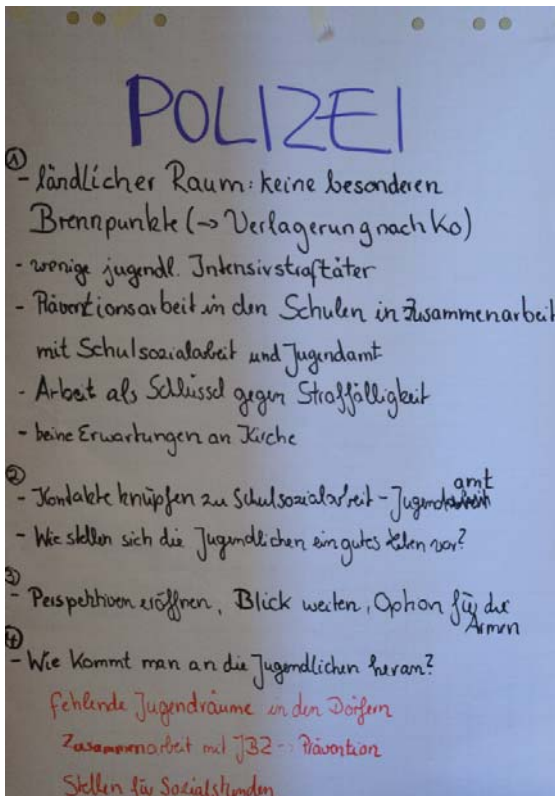 POLIZEI
①
- ländlicher Raum: keine besonderen
Brennpunkte (→ Verlagerung nach Ko)
- wenige jugendl. Intensivstraftäter
- Präventionsarbeit in den Schulen in Zusammenarbeit
mit Schulsozialarbeit und Jugendamt
- Arbeit als Schlüssel gegen Straffälligkeit
- keine Erwartungen an Kirche
②
- Kontakte knüpfen zu Schulsozialarbeit - Jugendamt
- Wie stellen sich die Jugendlichen ein gutes Leben vor?
③
- Perspektiven eröffnen, Blick weiten, Option für die
Armen
④
- Wie kommt man an die Jugendlichen heran?
fehlende Jugendräume in den Dörfern
Zusammenarbeit mit JBZ -> Prävention
Stellen für Sozialstunden